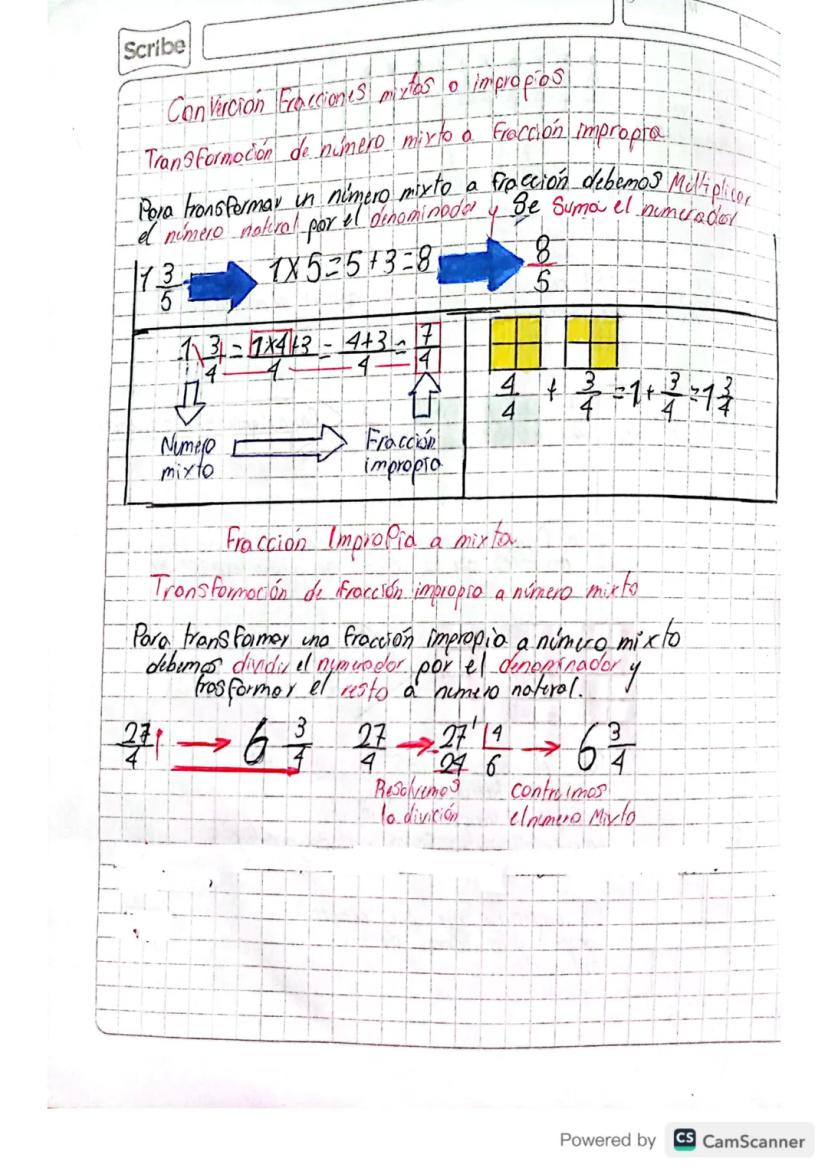 Scribe
Converción Fracciones mixtas o impropias
Transformación de número mixto a fracción impropia
Para transformar un número mixto a fracción debemos Multiplicar
el número natural por el denominador y Se Suma el numerador
1 3/5 → 1x5=5+3=8 → 8/5
1 3/4 = 1x4+3/4 = 4+3/4 = 7/4
Numero mixto → Fracción impropia
4/4 + 3/4 = 1 + 3/4 = 1 3/4
Fracción Impropia a mixta
Transformación de fracción impropia a número mixto
Para transformar una fracción impropia a número mixto
debemos dividir el numerador por el denominador y
trasformar el resto a número natural.
27/4 → 6 3/4 27/4 → 27 24 4 6 → 6 3/4
Resolvemos contruimos
la divición el numero Mixto
Powered by CS CamScanner